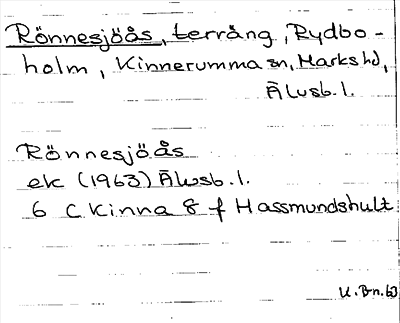 Rönnesjöås, terräng, Rydbo-
holm, Kinnarumma sn, Marks hd,
Älvsb. l.
Rönnesjöås
ek (1963) Älvsb. l.
6 C Kinna 8 f Hassmundshult
U. Bn. 63